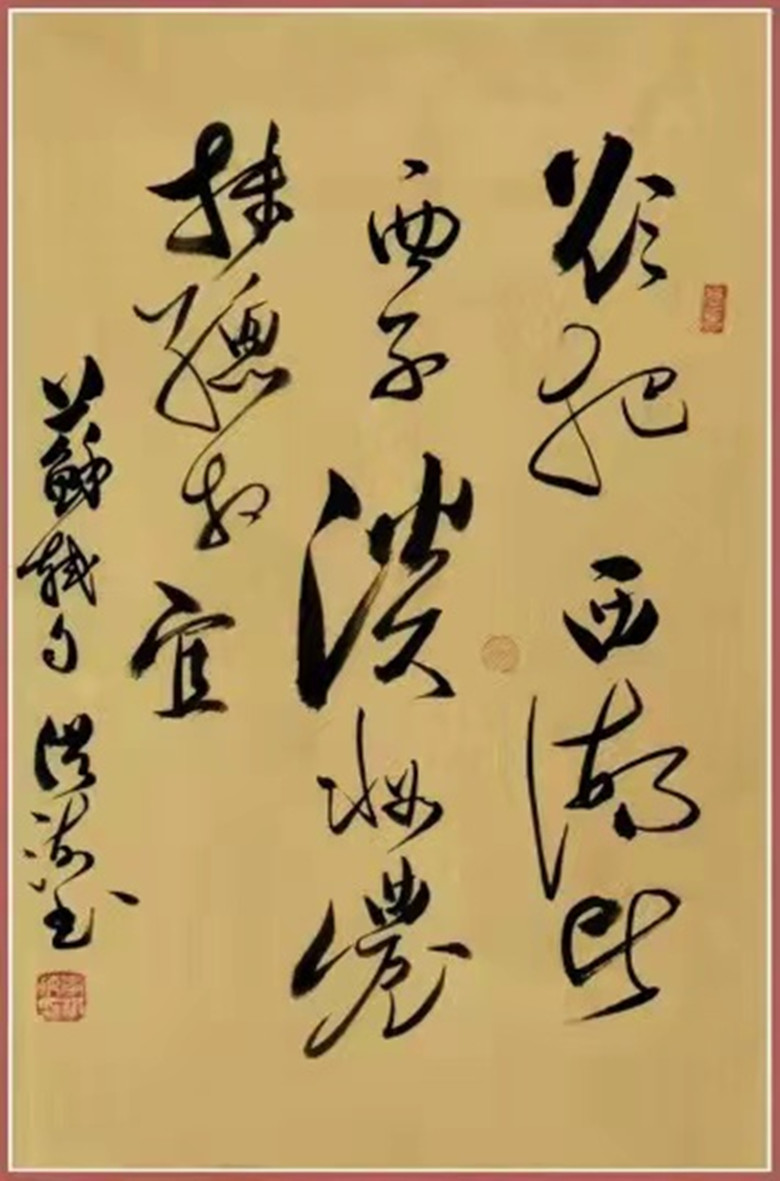 欲把西湖比
西子淡妝濃
抹總相宜
蘇軾句 洪 书